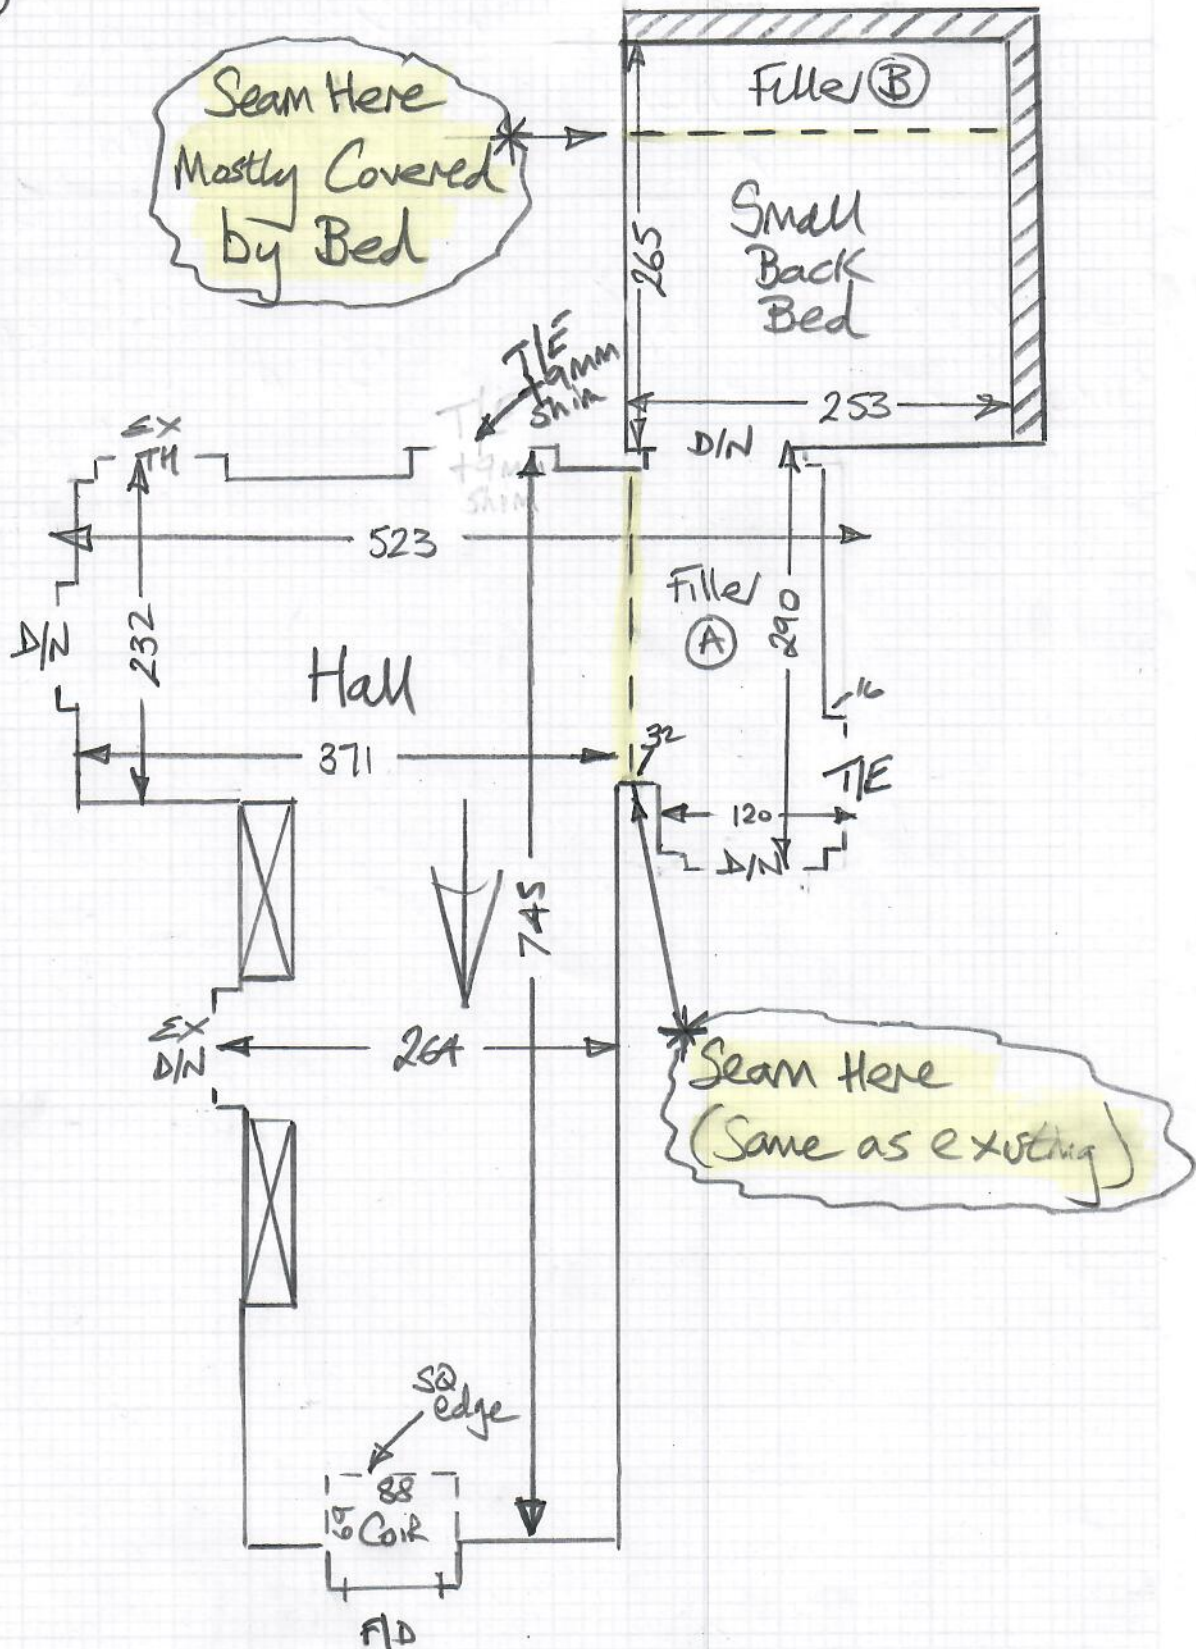 Filler B
Seam Here
Mostly Covered
by Bed
Small
Back
Bed
265
253
T/E
+9mm
shim
T/E
+9mm
shim
EX
TH
D/N
523
Filler
A
290
232
D/N
Hall
16
32
371
T/E
120
D/N
745
EX
D/N
264
Seam Here
(Same as existing)
SQ
edge
88
Coir
F/D